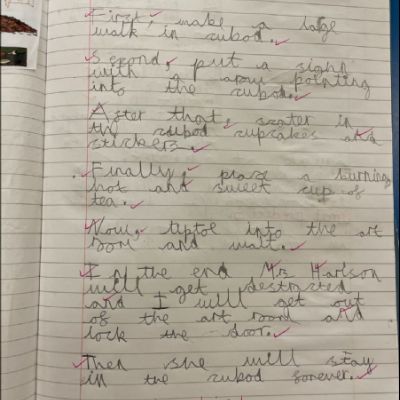 First, make a lage
walk in cubod.
Second, put a sighn
with a arow pointing
into the cubod.
After that, scater in
the cubod cupcakes and
stickers.
Finally, place a burning
hot and sweet cup of
tea.
Now, tiptoe into the art
room and wait.
In the end Mrs Harison
will get destracted
and I will get out
of the art room and
lock the door.
Then she will stay
in the cubod forever.